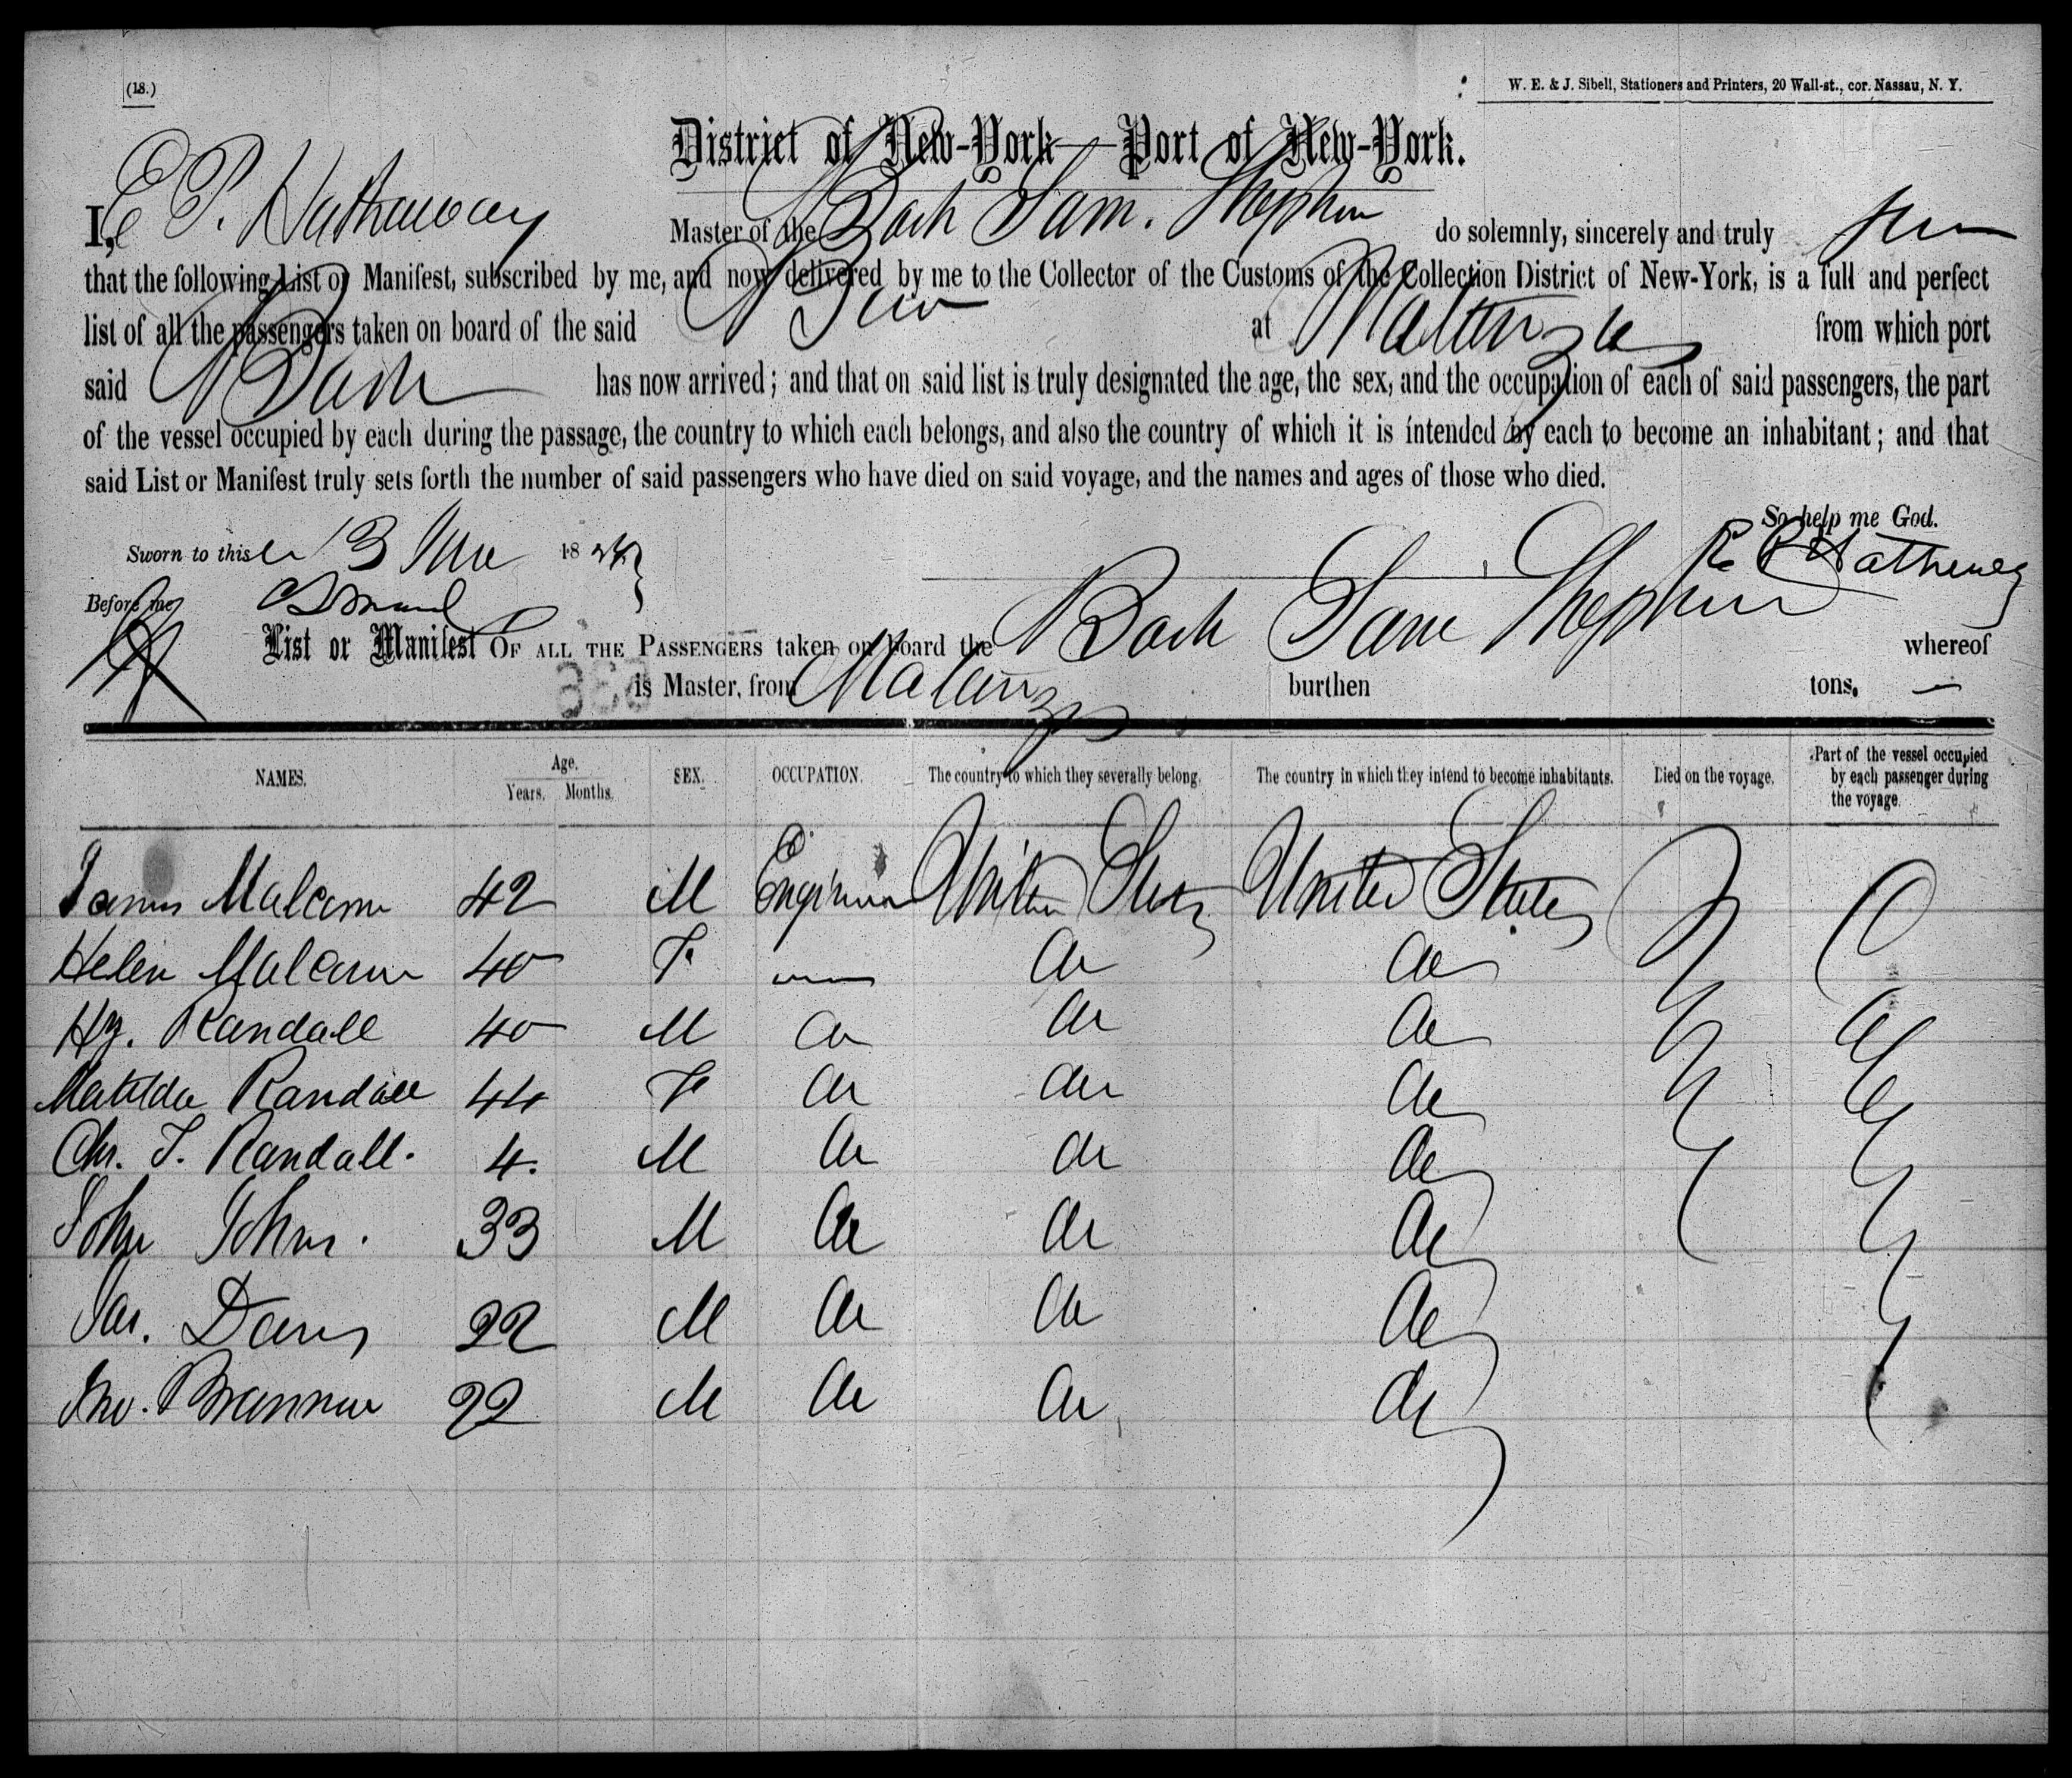 (18.)
W. E. & J. Sibell, Stationers and Printers, 20 Wall-st., cor. Nassau, N. Y.
District of New-York—Port of New-York.
I, E P. Hathaway Master of the Bark Sam. Shephen do solemnly, sincerely and truly
that the following List or Manifest, subscribed by me, and now delivered by me to the Collector of the Customs of the Collection District of New-York, is a full and perfect
list of all the passengers taken on board of the said at Matanzas from which port
said Bark has now arrived; and that on said list is truly designated the age, the sex, and the occupation of each of said passengers, the part
of the vessel occupied by each during the passage, the country to which each belongs, and also the country of which it is intended by each to become an inhabitant; and that
said List or Manifest truly sets forth the number of said passengers who have died on said voyage, and the names and ages of those who died.
So help me God.
Sworn to this 13 June 18 E P Hatheway
Before me
List or Manifest OF ALL THE PASSENGERS taken on board the Bark Sam Shephen whereof
is Master, from Matanzas burthen tons. —
NAMES. Age. Years. Months. SEX. OCCUPATION. The country to which they severally belong. The country in which they intend to become inhabitants. Died on the voyage. Part of the vessel occupied by each passenger during the voyage.
James Malcom 42 M Engineer United States United States
Helen Malcom 40 F — do do
Hy. Randall 40 M do do do
Matilda Randall 44 F do do do
Chs. T. Randall. 4. M do do do
John Johns. 33 M do do do
Jas. Davis 22 M do do do
Jno. Brannon 22 M do do do